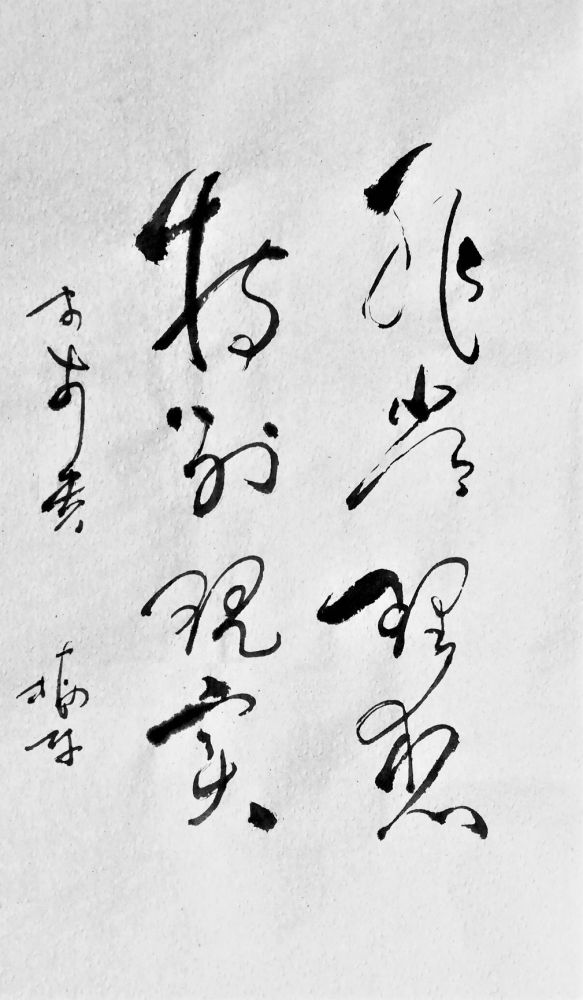 非常理想
特别现实